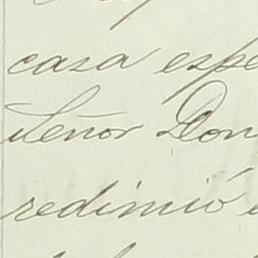 casa espe
Señor Don
redimió